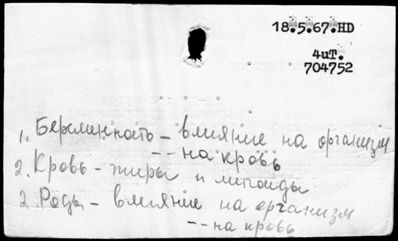 18.5.67.HD
4uT.
704752
1. Беременность – влияние на организм
– – на кровь
2. Кровь – жиры и липоиды
2. Роды – влияние на организм
– – на кровь